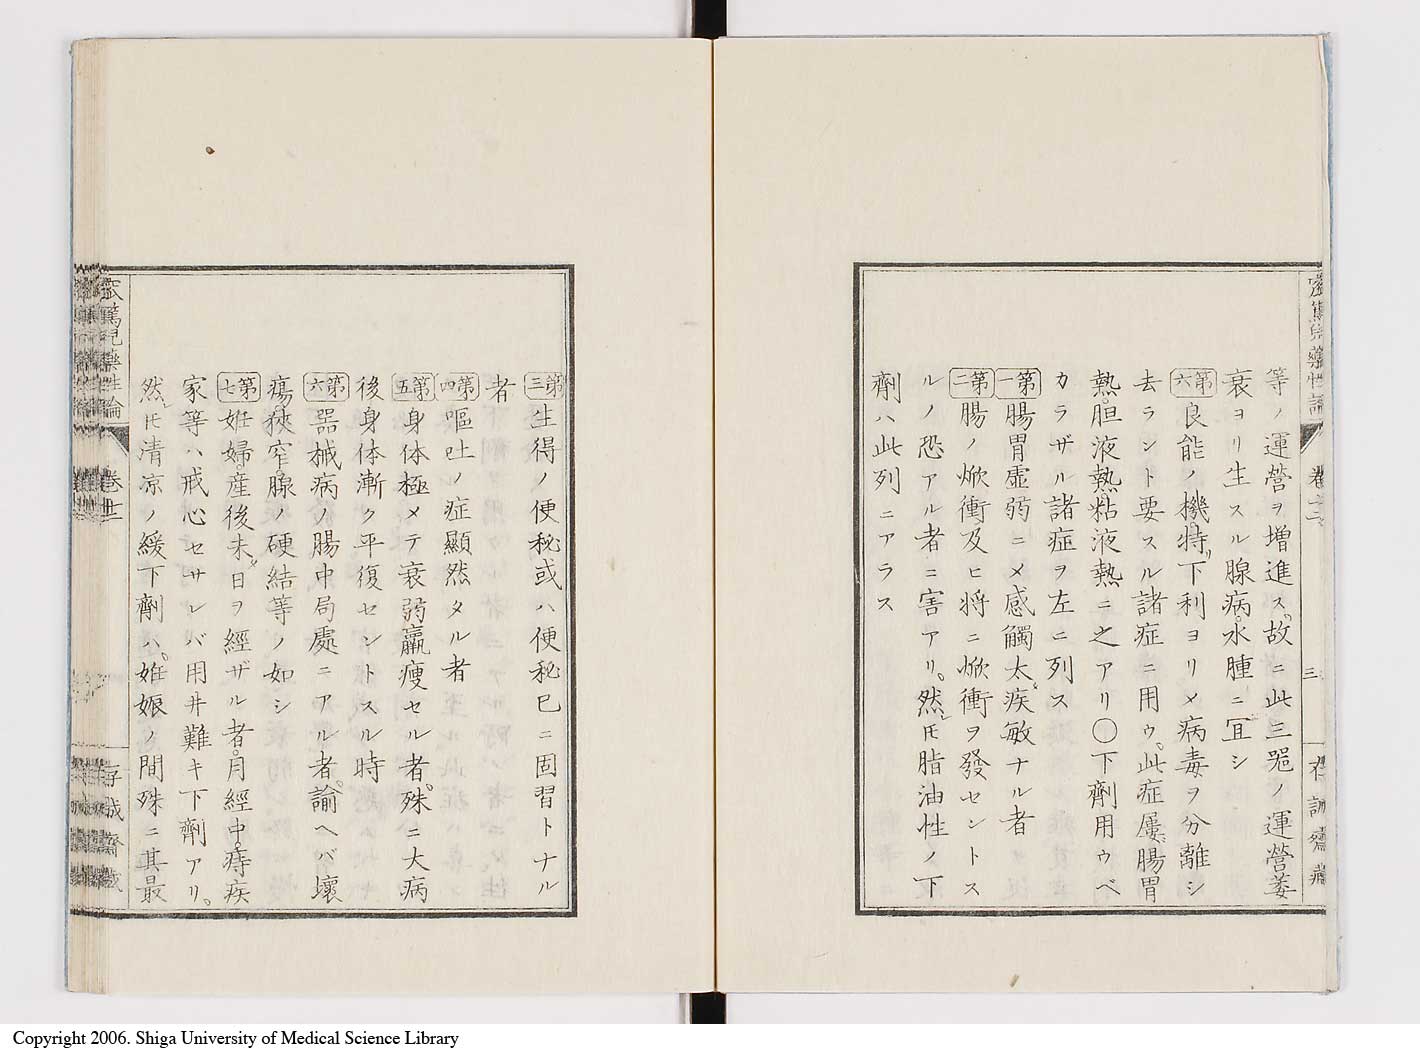 等ノ運營ヲ增進ス。故ニ此三器ノ運營萎
衰ヨリ生スル腺病。水腫ニ宜シ
第六良能ノ機特下利ヨリメ病毒ヲ分離シ
去ラント要スル諸症ニ用ウ。此症屢腸胃
熱。胆液熱。粘液熱ニ之アリ〇下劑用ウベ
カラザル諸症ヲ左ニ列ス
第一腸胃虛弱ニメ感觸太疾。敏ナル者
第二腸ノ焮衝及ヒ將ニ焮衝ヲ發セントス
ルノ恐アル者ニ害アリ。然𪜈脂油性ノ下
劑ハ此列ニアラス
卷
三
第三生得ノ便秘或ハ便秘已ニ固習トナル
者
第四嘔吐ノ症顯然タル者
第五身体極メテ衰弱羸瘦セル者。殊ニ大病
後身体漸ク平復セントスル時
第六器械病ノ腸中局處ニアル者。諭ヘバ壞
瘍。狹窄。腺ノ硬結等ノ如シ
第七妊婦。產後未日ヲ經ザル者。月經中。痔疾
家等ハ戒心セサレバ用井難キ下劑アリ。
然𪜈清凉ノ緩下劑ハ。妊娠ノ間殊ニ其最
篤兒藥性論
卷
存誠齋藏
Copyright 2006. Shiga University of Medical Science Library